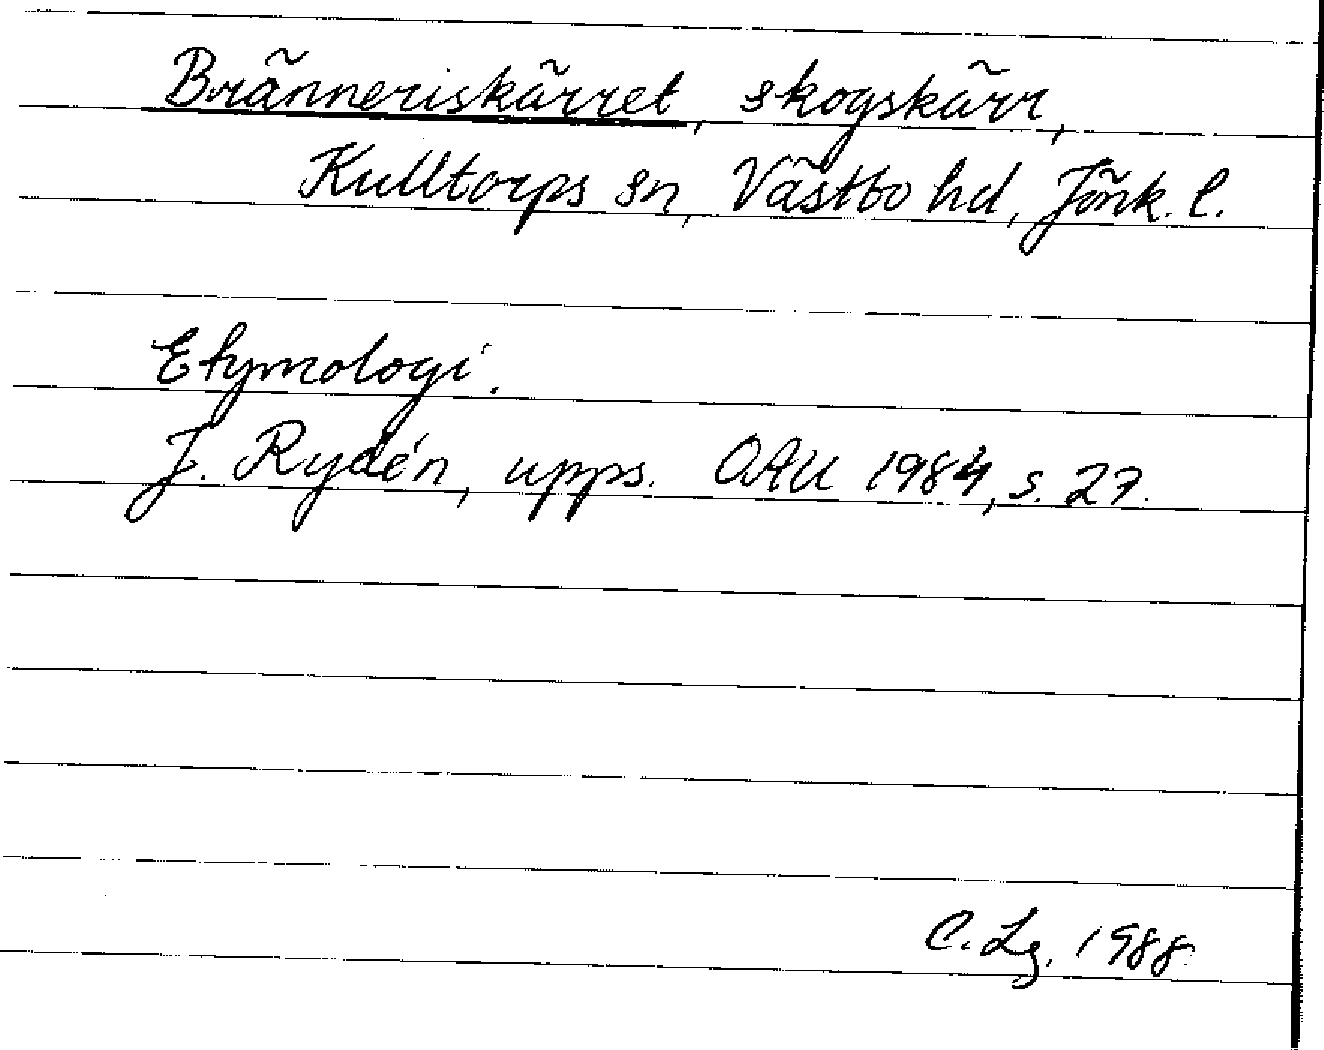 Bränneriskärret, skogskärr,
Kulltorps sn, Västbo hd, Jönk. l.
Etymologi.
J. Rydén, upps. OAU 1984, s. 27.
C. Lg. 1988